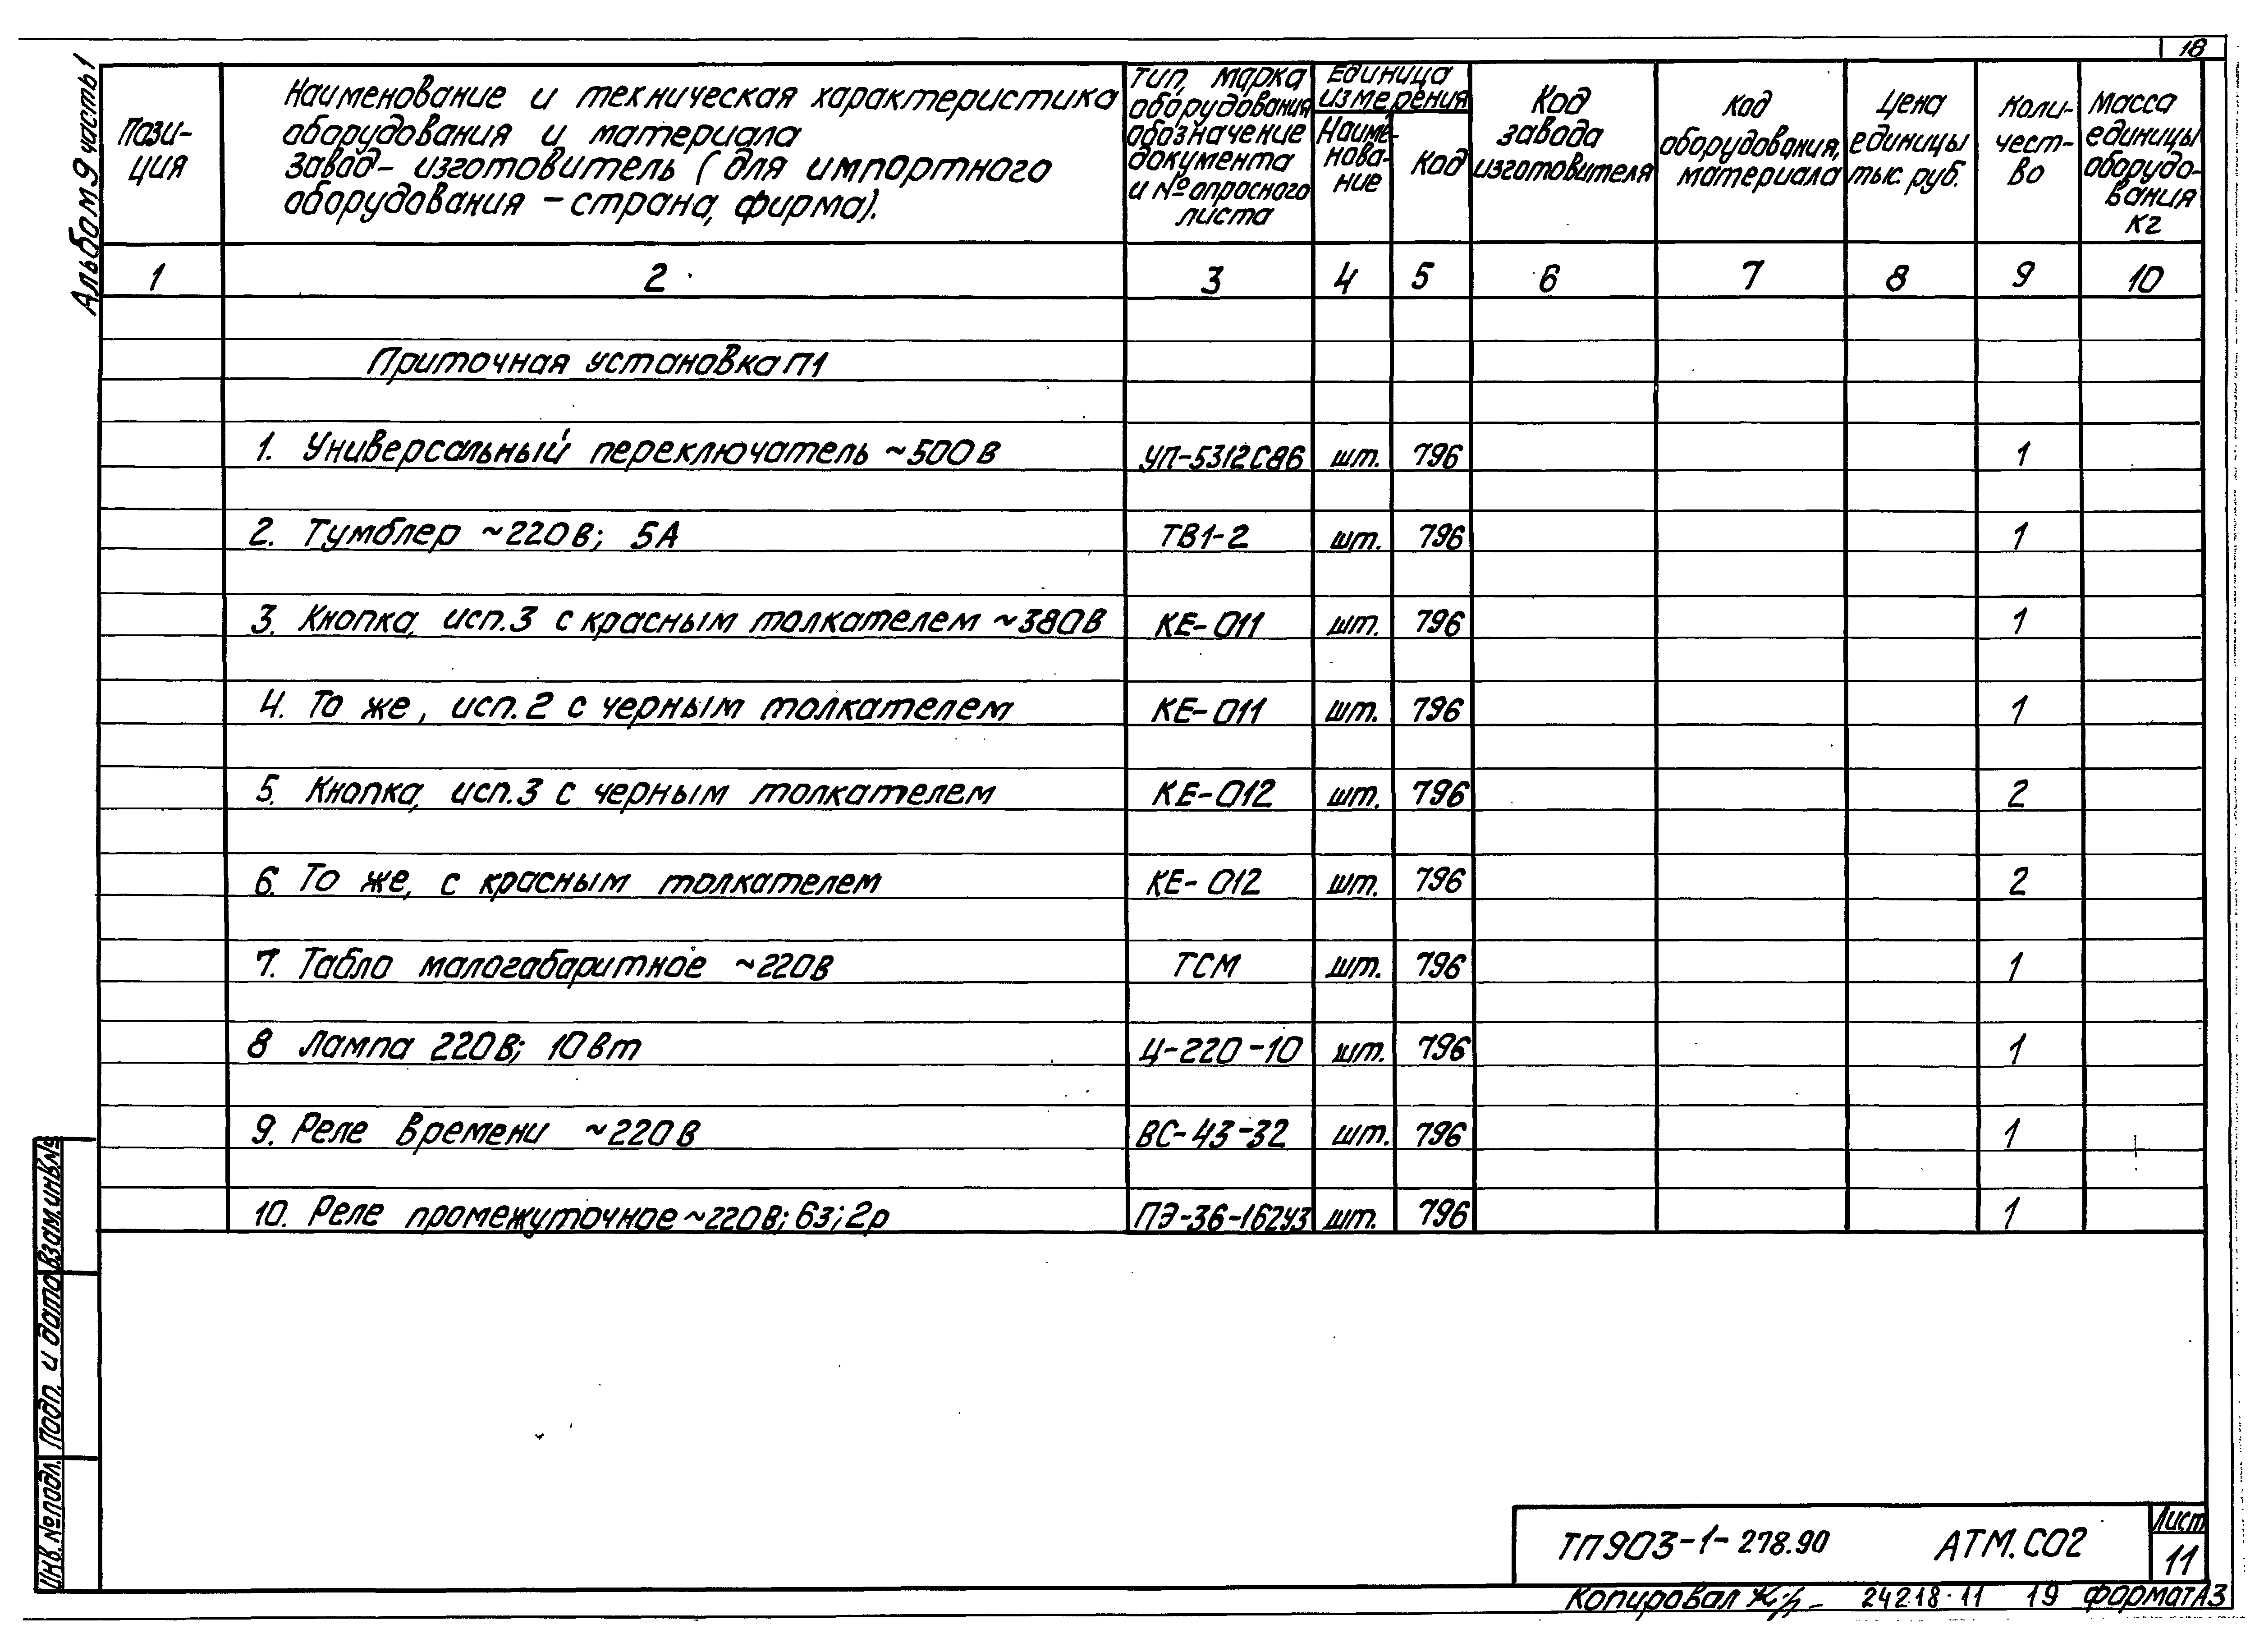 18
Альбом 9 часть 1
Пози-
ция
Наименование и техническая характеристика
оборудования и материала
завод- изготовитель (для импортного
оборудования - страна, фирма).
Тип, марка
оборудования,
обозначение
документа
и № опросного
листа
Единица
измерения
Наиме-
нова-
ние
Код
Код
завода
изготовителя
Код
оборудования,
материала
Цена
единицы
тыс. руб.
Коли-
чест-
во
Масса
единицы
оборудо-
вания
кг
1 2 3 4 5 6 7 8 9 10
Приточная установка П1
1. Универсальный переключатель ~500В УП-5312С86 шт. 796 1
2. Тумблер ~220В; 5А ТВ1-2 шт. 796 1
3. Кнопка, исп.3 с красным толкателем ~380В КЕ-011 шт. 796 1
4. То же, исп.2 с черным толкателем КЕ-011 шт. 796 1
5. Кнопка, исп.3 с черным толкателем КЕ-012 шт. 796 2
6. То же, с красным толкателем КЕ-012 шт. 796 2
7. Табло малогабаритное ~220В ТСМ шт. 796 1
8 Лампа 220В; 10Вт Ц-220-10 шт. 796 1
9. Реле времени ~220В ВС-43-32 шт. 796 1
10. Реле промежуточное ~220В; 6з; 2р ПЭ-36-162У3 шт. 796 1
Инв. № подл. Подп. и дата Взам. инв. №
ТП 903-1-278.90 АТМ.СО2
Лист
11
Копировал 24218-11 19 Формат А3